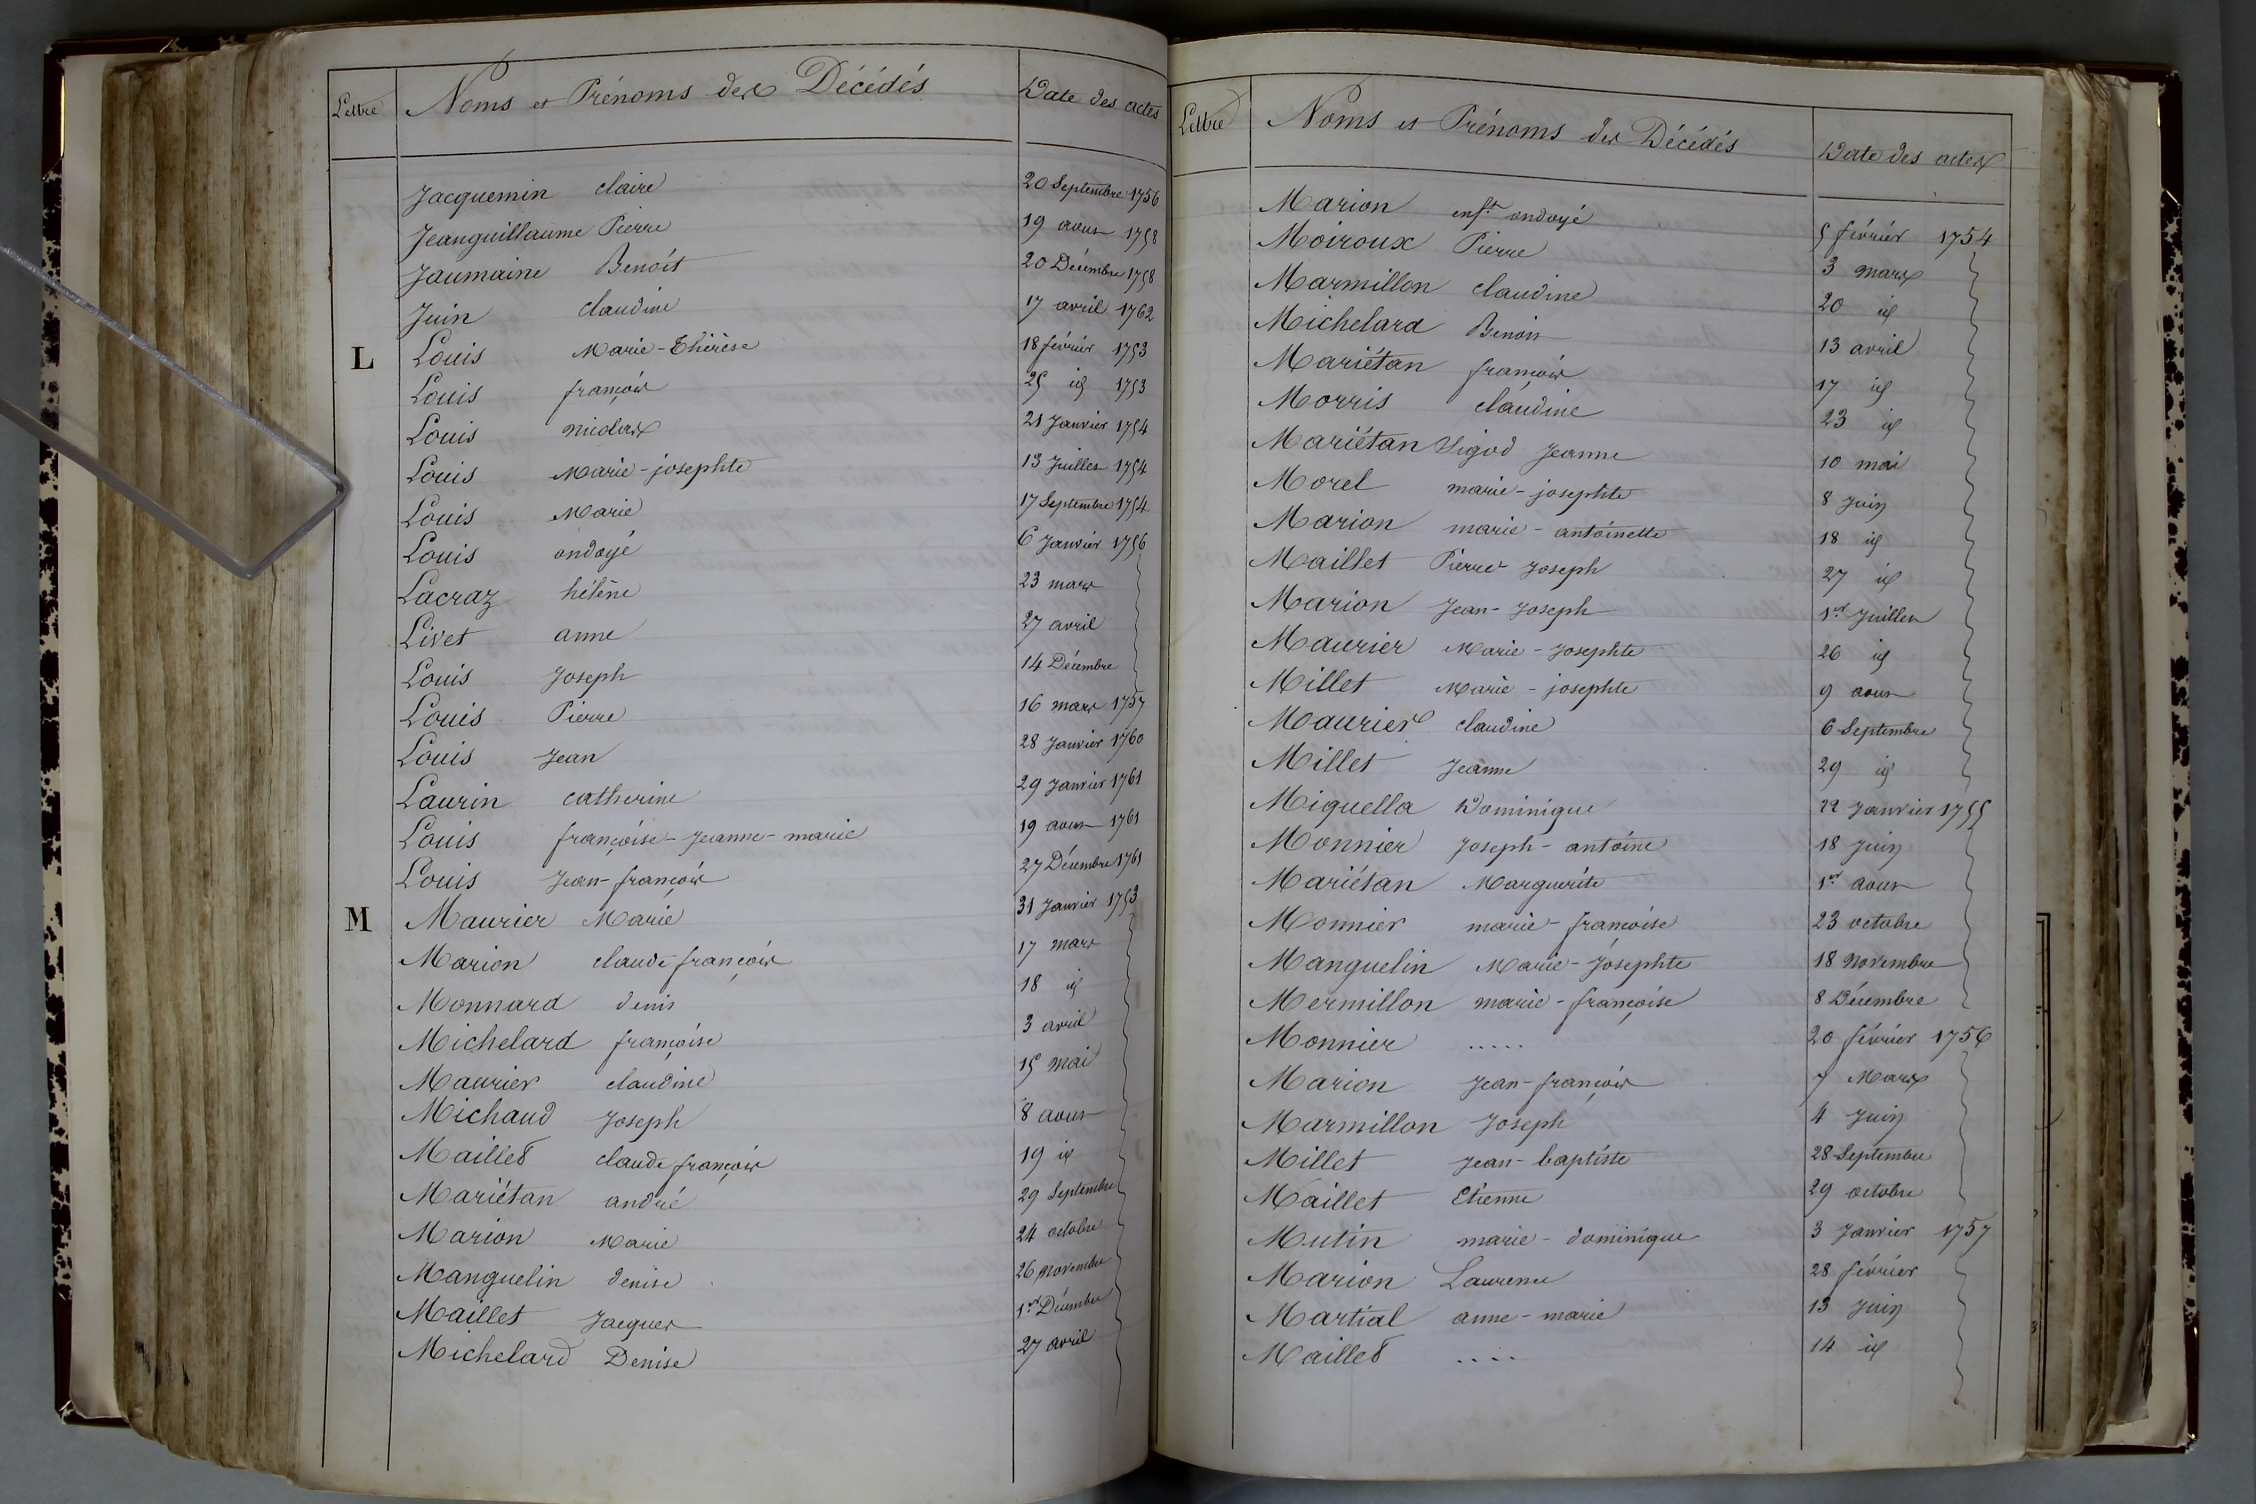 Lettre Noms et Prénoms des Décédés Date des actes
Jacquemin claire 20 Septembre 1756
Jeanguillaume Pierre 19 aout 1758
Jaumaine Benoit 20 Décembre 1758
Juin claudine 17 avril 1762
L Louis Marie-Thérèse 18 février 1753
Louis françois 25 id 1753
Louis nicolas 21 Janvier 1754
Louis Marie-josephte 13 Juillet 1754
Louis Marie 17 Septembre 1754
Louis ondoyé 6 Janvier 1756
Lacraz hélène 23 mars
Livet anne 27 avril
Louis Joseph 14 Décembre
Louis Pierre 16 mars 1757
Louis Jean 28 Janvier 1760
Laurin catherine 29 Janvier 1761
Louis françoise-Jeanne-marie 19 aout 1761
Louis Jean-françois 27 Décembre 1761
M Maurier Marie 31 Janvier 1753
Marion claude françois 17 mars
Monnard denis 18 id
Michelard françoise 3 avril
Maurier claudine 15 mai
Michaud Joseph 8 aout
Maillet claude françois 19 id
Mariétan andré 29 Septembre
Marion Marie 24 octobre
Manguelin denise 26 novembre
Maillet Jacques 1er Décembre
Michelard Denise 27 avril
Lettre Noms et Prénoms des Décédés Date des actes
Marion enft ondoyé 5 février 1754
Moiroux Pierre 3 mars
Marmillon claudine 20 id
Michelard Benoit 13 avril
Mariétan françois 17 id
Morris claudine 23 id
Mariétan Jeanne 10 mai
Morel marie-josephte 8 Juin
Marion marie-antoinette 18 id
Maillet Pierre-Joseph 27 id
Marion Jean-Joseph 1er Juillet
Maurier Marie-Josephte 26 id
Millet Marie-josephte 9 aout
Maurier claudine 6 Septembre
Millet Jeanne 29 id
Miquella Dominique 22 Janvier 1755
Monnier Joseph-antoine 18 Juin
Mariétan Marguerite 1er aout
Monnier marie-françoise 23 octobre
Manguelin Marie-Josephte 18 Novembre
Mermillon marie-françoise 8 Décembre
Monnier ..... 20 février 1756
Marion Jean-françois 7 Mars
Marmillon Joseph 4 Juin
Millet Jean-baptiste 28 Septembre
Maillet Etienne 29 octobre
Mutin marie-dominique 3 Janvier 1757
Marion Laurence 28 février
Martial anne-marie 13 Juin
Maillet .... 14 id